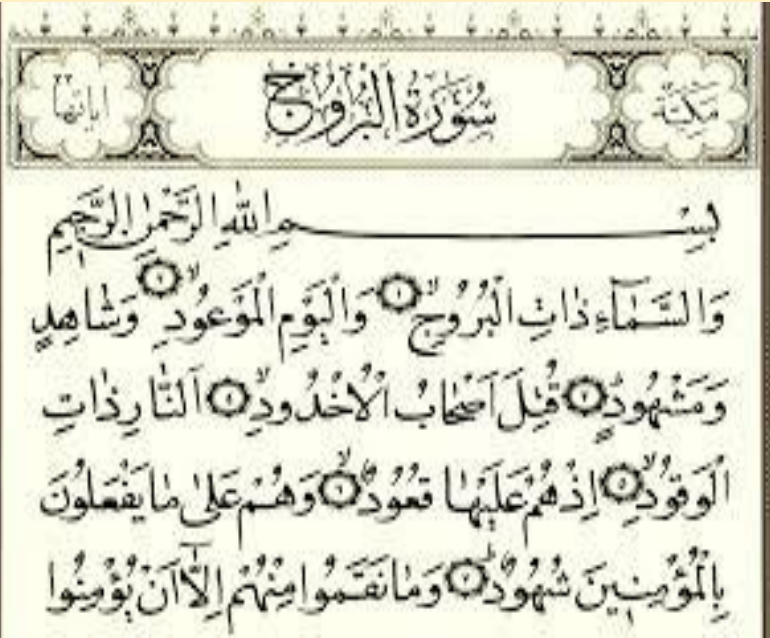 مَكِّيَّة سُورَةُ الْبُرُوجِ اياتها ٢٢
بِسْمِ اللّٰهِ الرَّحْمٰنِ الرَّحِيمِ
وَالسَّمَٓاءِ ذَاتِ الْبُرُوجِۙ ١ وَالْيَوْمِ الْمَوْعُودِۙ ٢ وَشَاهِدٍ
وَمَشْهُودٍۜ ٣ قُتِلَ اَصْحَابُ الْاُخْدُودِۙ ٤ اَلنَّارِ ذَاتِ
الْوَقُودِۙ ٥ اِذْ هُمْ عَلَيْهَا قُعُودٌۙ ٦ وَهُمْ عَلٰى مَا يَفْعَلُونَ
بِالْمُؤْمِنِينَ شُهُودٌۜ ٧ وَمَا نَقَمُوا مِنْهُمْ اِلَّٓا اَنْ يُؤْمِنُوا